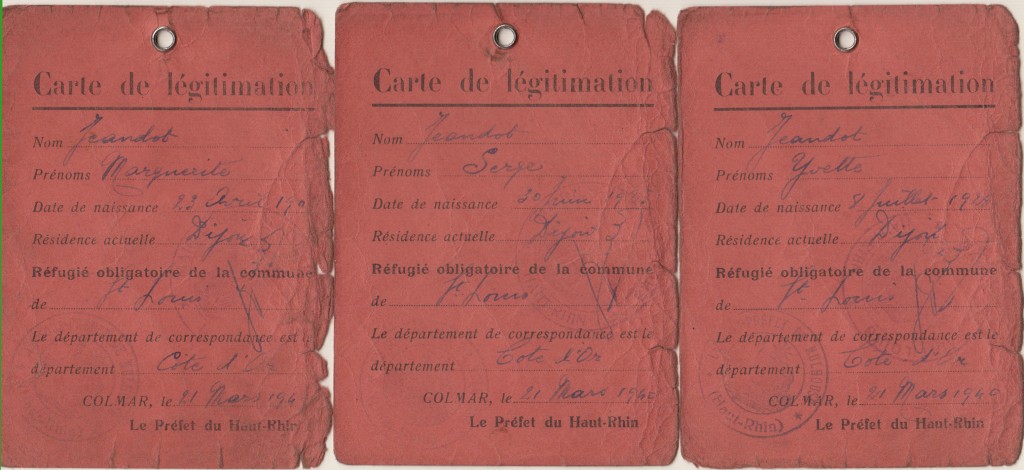 Carte de légitimation
Nom Jeandot
Prénoms Marguerite
Date de naissance 23 Avril
Résidence actuelle Dijon
Réfugié obligatoire de la commune
de St Louis
Le département de correspondance est le
département Côte d'Or
COLMAR, le 21 Mars 1940
Le Préfet du Haut-Rhin
Carte de légitimation
Nom Jeandot
Prénoms Serge
Date de naissance 30 Juin
Résidence actuelle Dijon
Réfugié obligatoire de la commune
de St Louis
Le département de correspondance est le
département Cote d'Or
COLMAR, le 21 Mars 1940
Le Préfet du Haut-Rhin
Carte de légitimation
Nom Jeandot
Prénoms Yvette
Date de naissance 8 Juillet
Résidence actuelle Dijon
Réfugié obligatoire de la commune
de St Louis
Le département de correspondance est le
département Cote d'Or
(Haut-Rhin)
COLMAR, le 21 Mars 1940
Le Préfet du Haut-Rhin